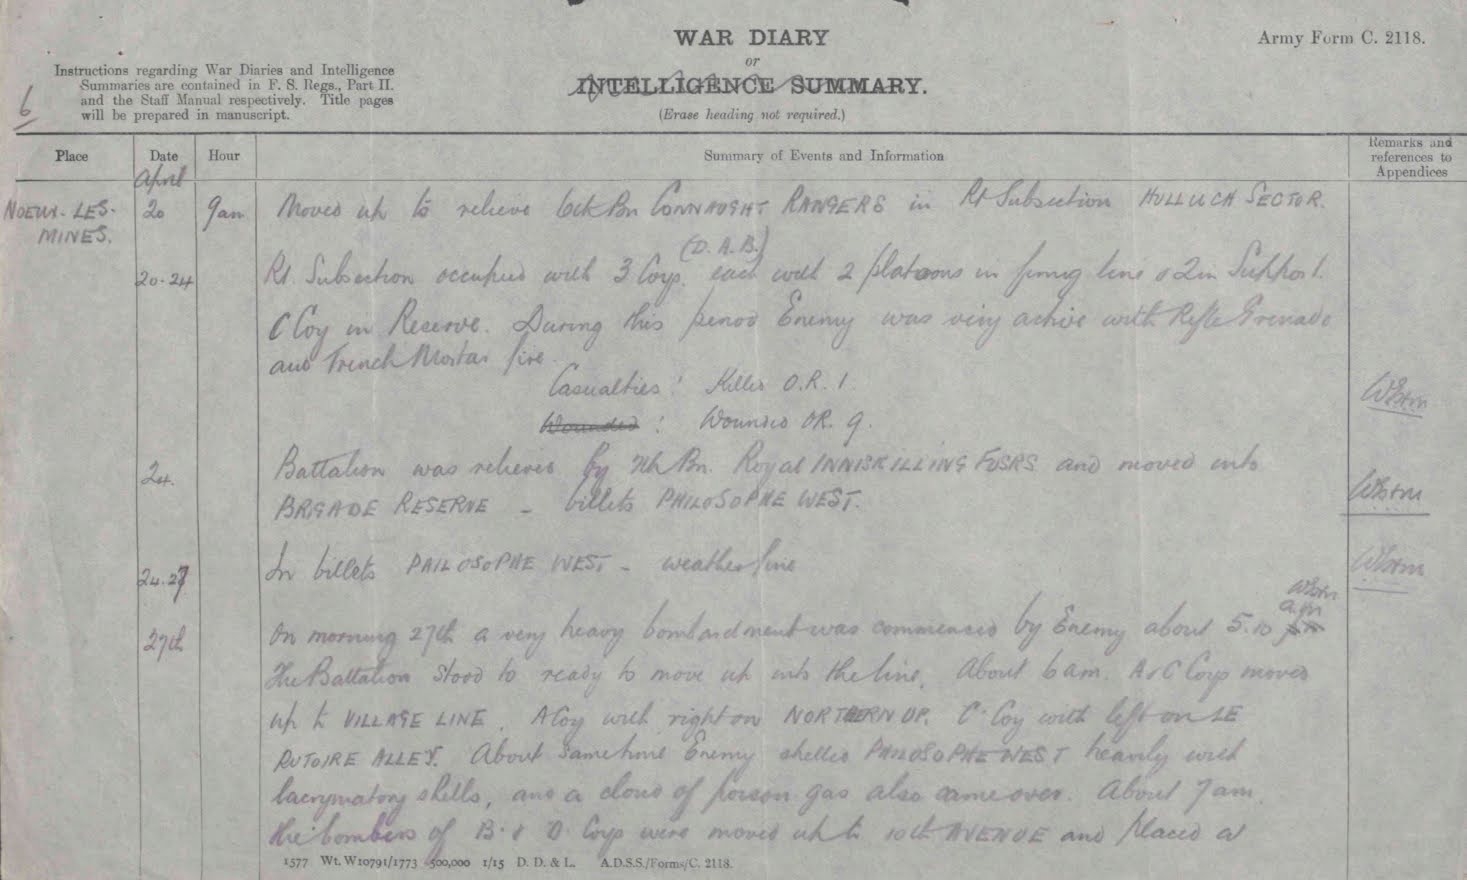 WAR DIARY
Army Form C. 2118.
or
INTELLIGENCE SUMMARY.
(Erase heading not required.)
Instructions regarding War Diaries and Intelligence
Summaries are contained in F. S. Regs., Part II.
and the Staff Manual respectively. Title pages
will be prepared in manuscript.
6
Place Date Hour Summary of Events and Information Remarks and references to Appendices
April
NOEUX-LES-MINES. 20 9am Moved up to relieve 6th Bn CONNAUGHT RANGERS in Rt Subsection HULLUCH SECTOR.
(D.A.B.)
20-24 Rt. Subsection occupied with 3 Coys. each with 2 platoons in firing line & 2 in Support.
C Coy in Reserve. During this period Enemy was very active with Rifle Grenade
and Trench Mortar fire.
Casualties: Killed O.R. 1.
Wounded : Wounded OR. 9.
24. Battalion was relieved by 7th Bn. Royal INNISKILLING FUSRS and moved into
BRIGADE RESERVE - billets PHILOSOPHE WEST.
24-27 In billets PHILOSOPHE WEST - weather fine
a.m
27th On morning 27th a very heavy bombardment was commenced by Enemy about 5.10 pm
The Battalion stood to ready to move up into the line. About 6 am. A & C Coys moved
up to VILLAGE LINE. A Coy with right on NORTHERN UP. C Coy with left on LE
RUTOIRE ALLEY. About same time Enemy shelled PHILOSOPHE WEST heavily with
lacrymatory shells, and a cloud of poison gas also came over. About 7 am.
the bombers of B. & D. Coys were moved up to 10th AVENUE and placed at
1577 Wt. W10791/1773 500,000 1/15 D. D. & L. A.D.S.S./Forms/C. 2118.